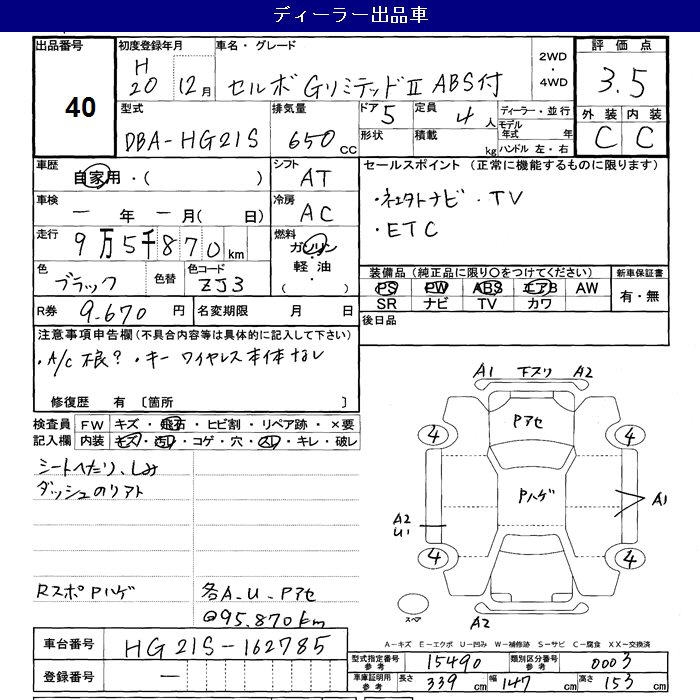 ディーラー出品車
出品番号 40
初度登録年月 H20 12月
車名・グレード セルボ GリミテッドⅡ ABS付
2WD・4WD
評価点 3.5
外装 C 内装 C
型式 DBA-HG21S
排気量 650 CC
ドア 5
形状
定員 4人
積載 kg
ディーラー・並行
モデル年式 年
ハンドル 左・右
車歴 自家用・( )
シフト AT
車検 ー年 ー月( 日)
冷房 AC
走行 9万5千870km
燃料 ガソリン・軽油・( )
色 ブラック
色替
色コード ZJ3
R券 9.670 円
名変期限 月 日
セールスポイント (正常に機能するものに限ります)
・TV
・ETC
装備品 (純正品に限り〇をつけてください)
新車保証書
PS PW ABS エアB AW
有・無
SR ナビ TV カワ
後日品
注意事項申告欄(不具合内容等は具体的に記入して下さい)
・A/C 不良? ・キー ワイヤレス本体なし
修復歴 有 〔箇所 〕
検査員記入欄
FW キズ・飛石・ヒビ割・リペア跡・×要
内装 キズ・汚れ・コゲ・穴・スレ・キレ・破レ
シートへたり、しみ
ダッシュのリアト
RスポPハゲ
各A.U.Pアセ
@95.870km
A1 下スリ A2
Pアセ
4 4
Pハゲ
A1
A2
U1
4 4
スペア
A2
A-キズ E-エクボ U-凹み W-補修跡 S-サビ C-腐食 XX-交換済
車台番号 HG21S-162785
登録番号 ー
型式指定番号 参考 15490
類別区分番号 参考 0003
車庫証明用 参考 長さ 339 cm 幅 147 cm 高さ 153 cm